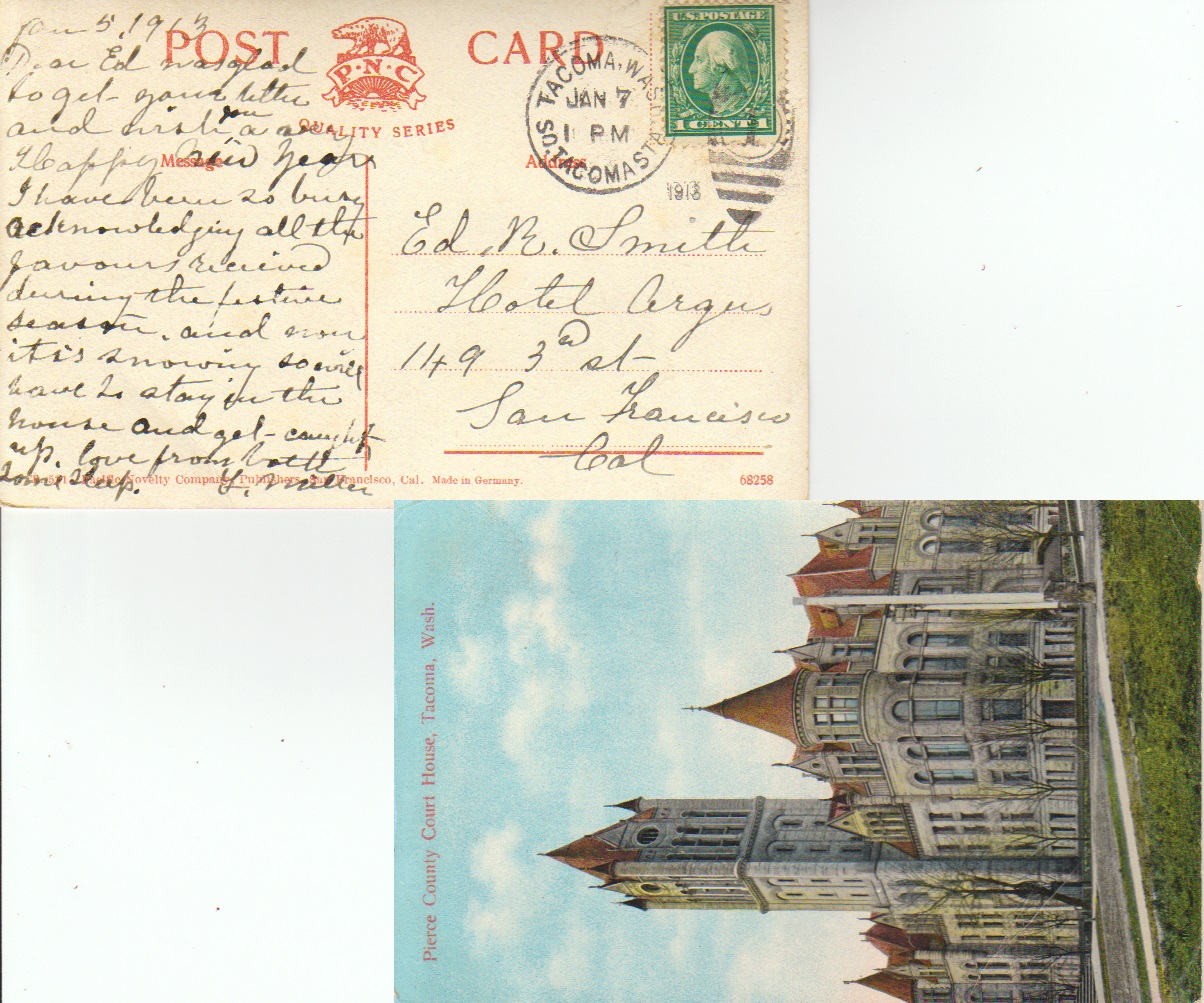 POST CARD
P·N·C
QUALITY SERIES
Message
Address
Jan 5, 1913
Dear Ed was glad
to get your letter
and wish you a
Happy New Year
I have been so busy
acknowledging all the
favours recieved
during the festive
season, and now
it is snowing so will
have to stay in the
house and get caught
up. love from both
some sleep. Miller
U.S. POSTAGE
1 CENT 1
TACOMA, WASH.
JAN 7
1 PM
SO. TACOMA STA.
1913
Ed. R. Smith
Hotel Argus
149 3rd st
San Francisco
Cal
Pacific Novelty Company, Publishers, San Francisco, Cal. Made in Germany.
68258
Pierce County Court House, Tacoma, Wash.